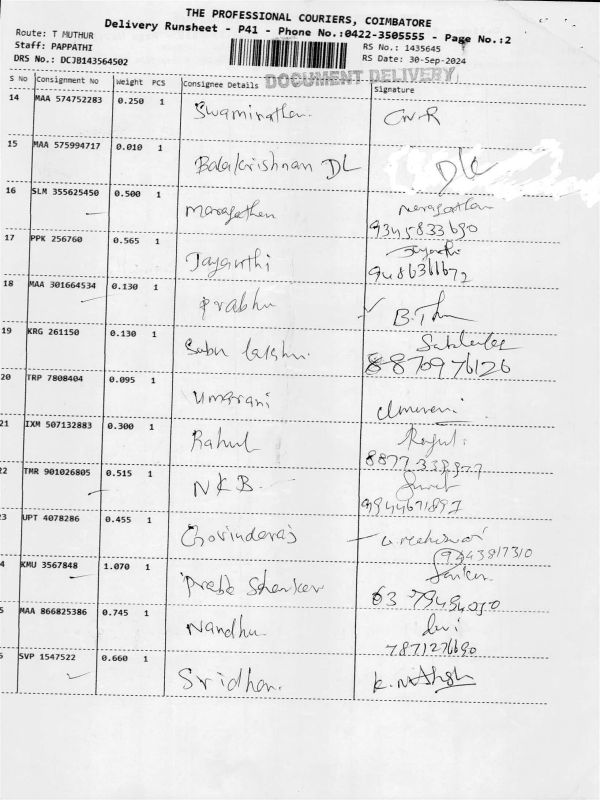 THE PROFESSIONAL COURIERS, COIMBATORE
Delivery Runsheet - P41 - Phone No.:0422-3505555 - Page No.:2
Route: T MUTHUR
Staff: PAPPATHI
RS No.: 1435645
DRS No.: DCJB143564502
RS Date: 30-Sep-2024
DOCUMENT DELIVERY
S No Consignment No Weight PCS Consignee Details Signature
14 MAA 574752283 0.250 1 Swaminathan. CN-R
15 MAA 575994717 0.010 1 Balakrishnan DL DL
16 SLM 355625450 0.500 1 Maragathen
9345833690
17 PPK 256760 0.565 1 Jayanthi Jayanthi
9486361672
18 MAA 301664534 0.130 1 Prabhu
19 KRG 261150 0.130 1 Sabu
8870976126
20 TRP 7808404 0.095 1 Umarani
21 IXM 507132883 0.300 1 Rahul
22 TMR 901026805 0.515 1 NKB.
9944671897
23 UPT 4078286 0.455 1 Govindaraj
9443817310
4 KMU 3567848 1.070 1
5 MAA 866825386 0.745 1 Nandhu
7871276690
6 SVP 1547522 0.660 1 Sridhar.